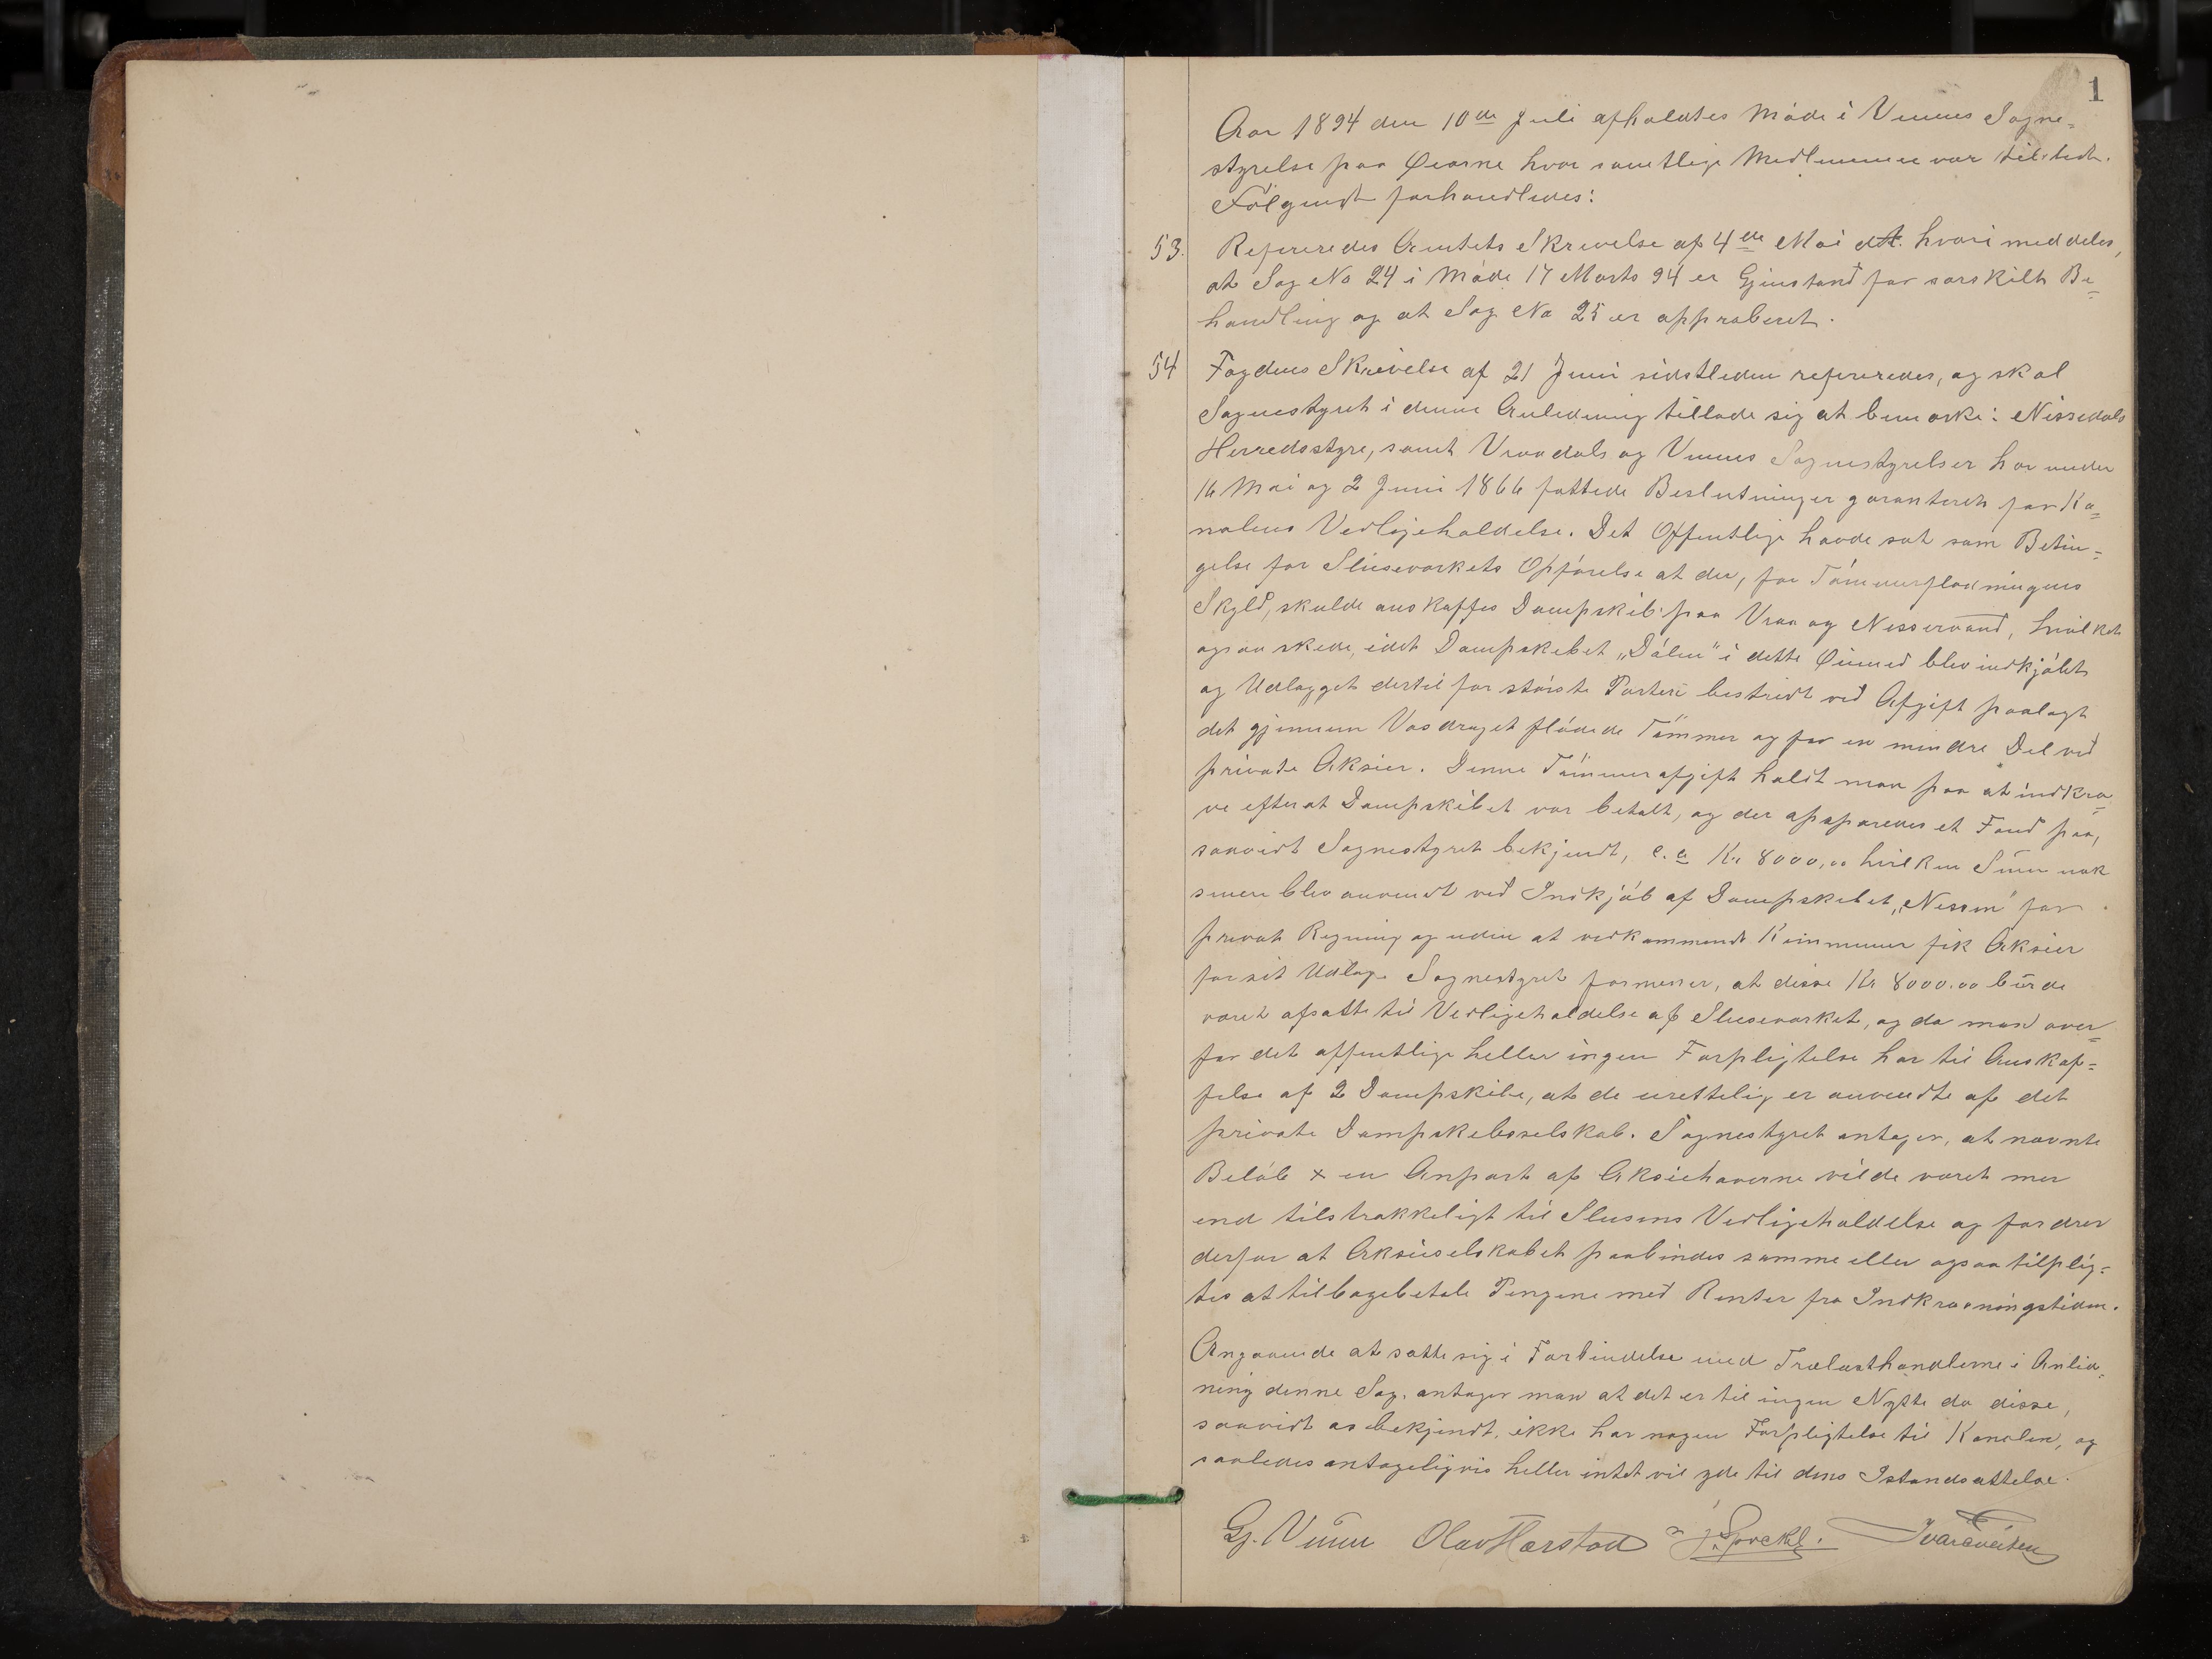 1
Aar 1894 den 10de Juli afholdtes Møde i Vinnes Sogne=
styrelse paa Øiarne hvor samtlige Medlemmer var tilstede.
Følgende forhandledes:
53. Refereredes Amtets Skrivelse af 4de Mai dA. hvori meddeles,
at Sag No 24 i Møde 17 Marts 94 er Gjenstand for særskilt Be=
handling og at Sag No 25 er approberet.
54 Fogdens Skrivelse af 21 Juni sidstleden refereredes, og skal
Sognestyret i denne Anledning tillade sig at bemærke: Nissedals
Herredsstyre, samt Vraadals og Vinnes Sognestyrelser har under
16 Mai og 2 Juni 1866 fattede Beslutninger garanteret for Ka=
nalens Vedligeholdelse. Det Offentlige havde sat som Betin=
gelse for Sluseværkets Opførelse at der, for Tømmerflødningens
Skyld, skulde anskaffes Dampskib paa Vraa og Nisservand, hvilket
ogsaa skede, idet Dampskibet „Dølen" i dette Øiemed blev indkjøbt
og Udlægget dertil for største Parten bestridt ved Afgift paalagt
det gjennem Vasdraget flødede Tømmer og for en mindre Del ved
private Aksier. Denne Tømmerafgift holdt man paa at indkræ=
ve efterat Dampskibet var betalt, og der opsparedes et Fond paa,
saavidt Sognestyret bekjendt, c.a Kr 8000,00 hvilken Sum nok
senere blev anvendt ved Indkjøb af Dampskibet „Nisseen" for
privat Regning og uden at vedkommende Kommuner fik Aksier
for sit Udlæg. Sognestyret formener, at disse Kr 8000.00 burde
været afsatte til Vedligeholdelse af Sluseværket, og da man over=
for det offentlige heller ingen Forpligtelse har til Anskaf=
felse af 2 Dampskibe, at de urettelig er anvendte af det
private Dampskibsselskab. Sognestyret antager, at nævnte
Beløb + en Anpart af Aksiehaverne vilde været mer
end tilstrækkeligt til Slusens Vedligeholdelse og fordrer
derfor at Aksieselskabet paabindes samme eller ogsaa tilplig=
tes at tilbagebetale Pengene med Renter fra Indkrævningstiden.
Angaaende at sætte sig i Forbindelse med Trælasthandlerne i Anled=
ning denne Sag, antager man at det er til ingen Nytte da disse,
saavidt os bekjendt, ikke har nogen Forpligtelse til Kanalen, og
saaledes antageligvis heller intet vil yde til dens Istandsættelse.
G. Vinn Olav Harstad Ivar